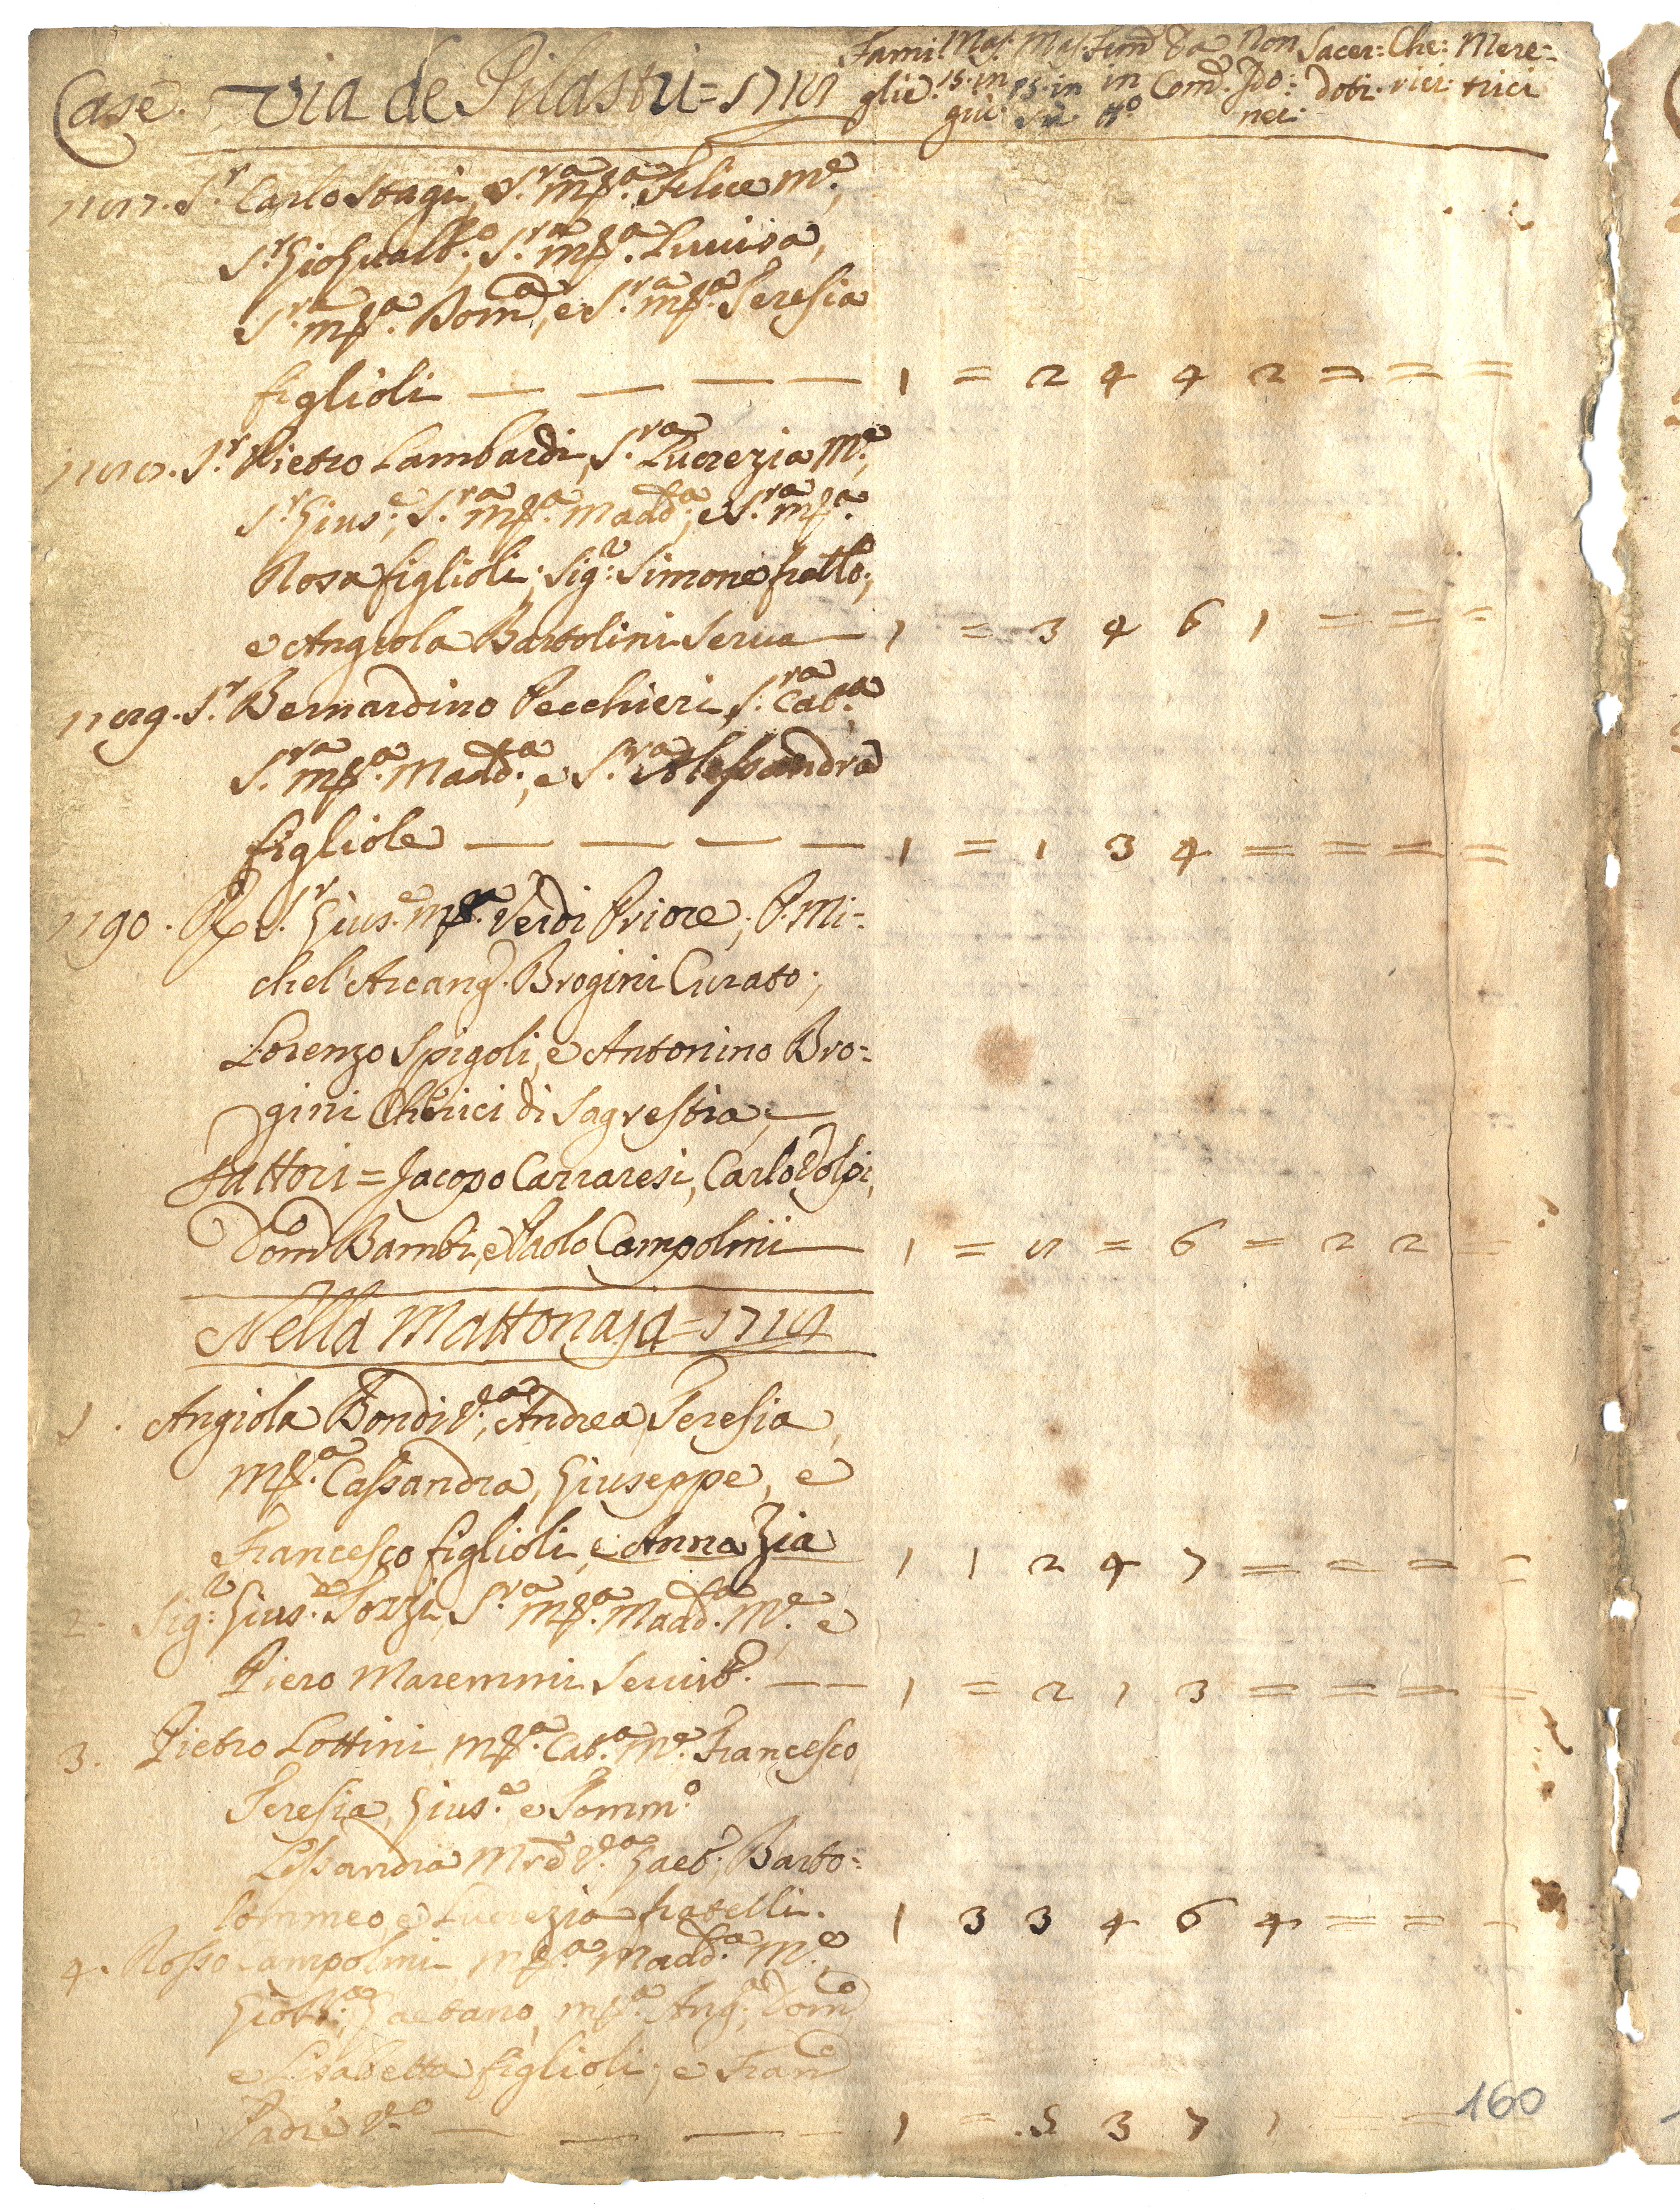 Case. Via de Pilastri = 1718
Fami: Mas. Mas. Fem̃ Da Non Sacer: Che: Mere=
glie. 15. in 15. in in Com̃. Ido: doti. rici trici
giù. sù tt.º nei.
1187. S.r Carlo Stagi, e S.ra M.a Felice M.e,
S.r Gio Gualb.o, S.ra M.a Luuisa,
S.ra M.a Dom.a, e S.ra M.a Teresia
figlioli — — — — 1 = 2 4 4 2 = = =
1188. S.r Pietro Lambardi, S.ra Lucrezia M.e,
S.r Gius.e, S.ra M.a Madd.a, e S.ra M.a
Rosa figlioli; Sig.r Simone fratllo;
e Angiola Bartolini Serua — 1 = 3 4 6 1 = = =
1189. S.r Bernardino Pecchieri, S.ra Cat.a
S.ra M.a Madd.a, e S.ra Alessandra
figliole — — — — 1 = 1 3 4 = = = =
1190. S.r Gius.e M.a Verdi Priore; P. Mi=
chel' Arcang. Brogini Curato;
Lorenzo Spigoli, e Antonino Bro=
gini Cherici di Sagrestia; —
Fattori = Jacopo Carraresi, Carlo Volpi,
Dom.o Bambi, e Paolo Campolmi — 1 = 8 = 6 = 2 2 =
Nella Mattonaja = 1718
1. Angiola Bondi V.a, Andrea, Teresia,
M.a Cassandra, Giuseppe, e
Francesco figlioli, e Anna Zia 1 1 2 4 7 = = = =
2. Sig.r Gius.e Tozzi, S.ra M.a Madd.a M.e e
Piero Maremmi Seruit.e — — 1 = 2 1 3 = = = =
3. Pietro Lottini, M.a Cat.a M.e Francesco
Teresia, Gius.e e Tomm.o
Lessandra Mrẽ V.a Gaet.o, Barto=
lommeo, e Lucrezia fratelli. 1 3 3 4 6 4 = = =
4. Rosso Campolmi M.a Madd.a M.e
Gaetano, M.a Ang.a, Dom.o
e Lisabetta figlioli; e Fran.o
Padre V.o — — — — 1 = 5 3 7 1 = =
160